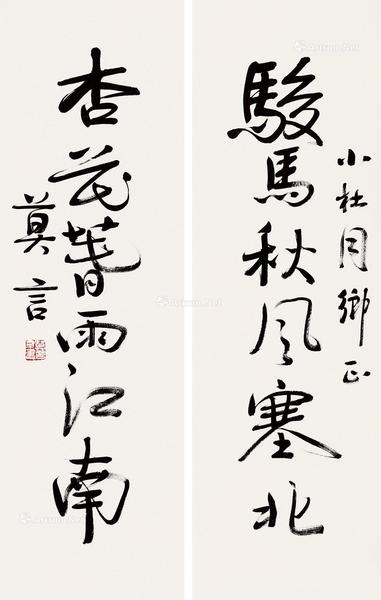 駿馬秋风塞北
小杜同鄉正
杏花萅雨江南
莫言
Artron.Net